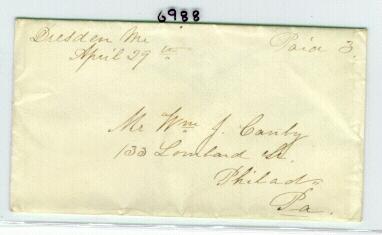 6988
Dresden Me
April 29th
Paid 3
Mr Wm J. Canby
133 Lombard St.
Philada
Pa.